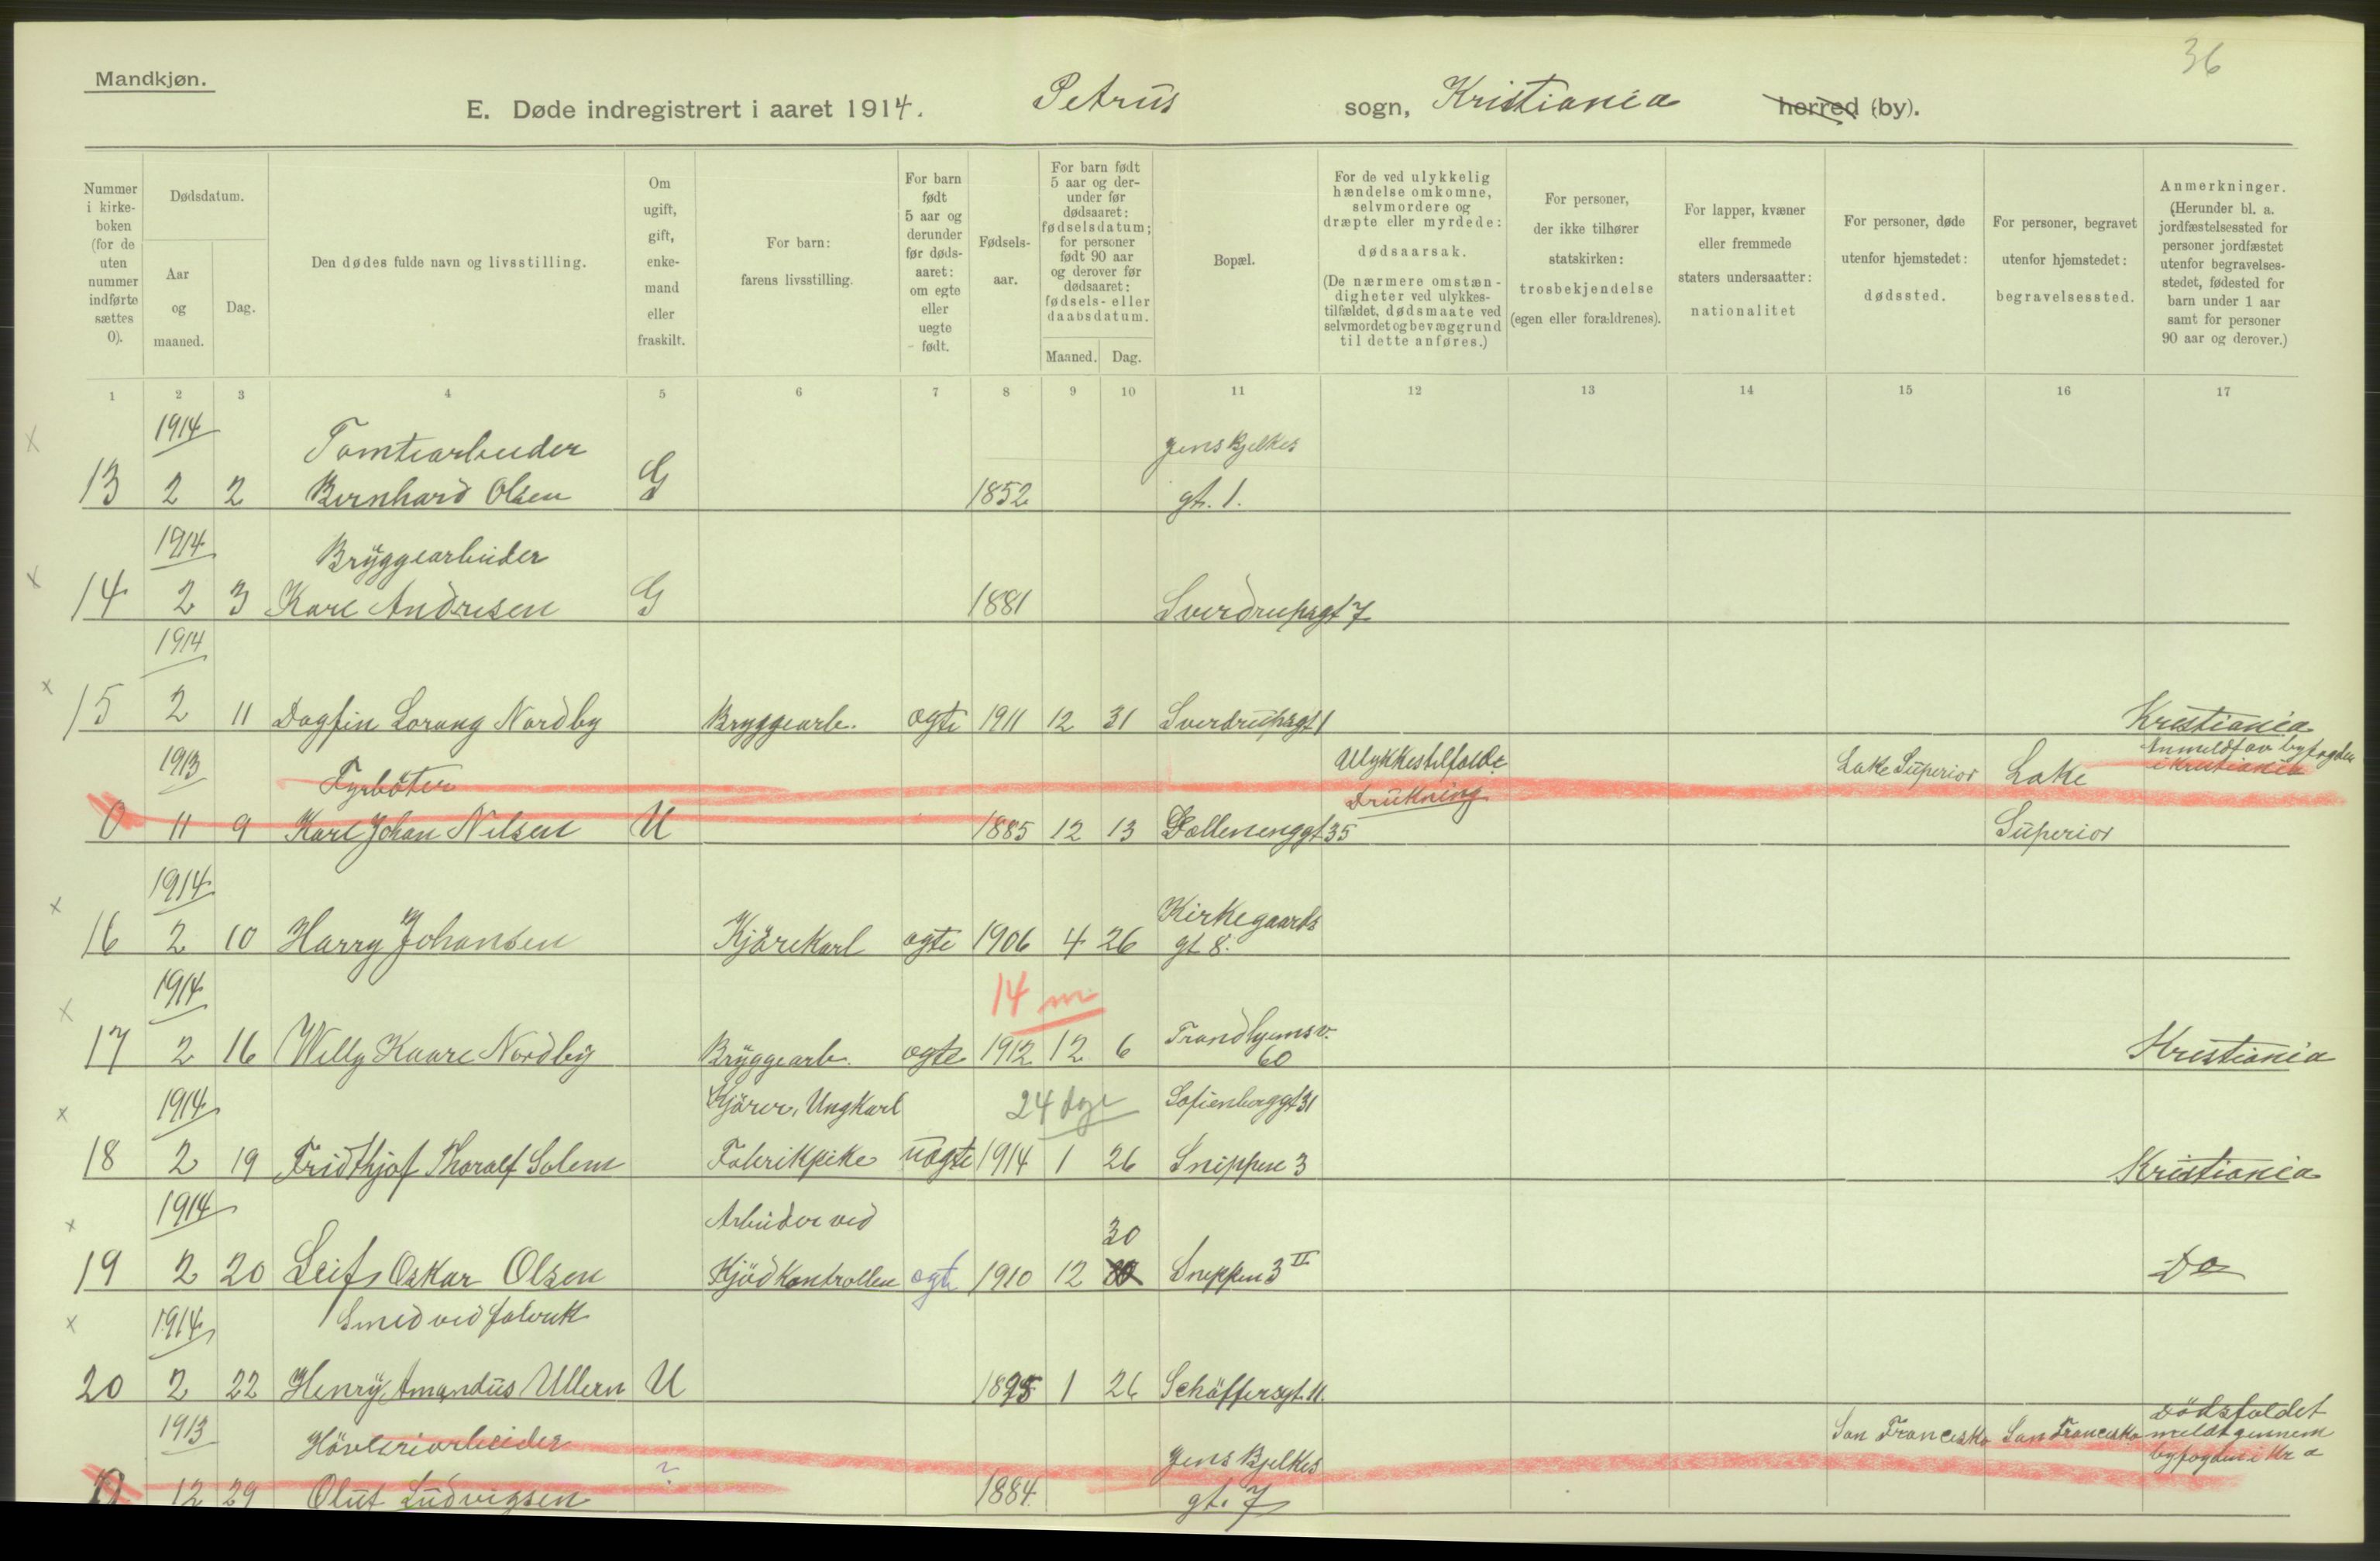 36
Mandkjøn.
E. Døde indregistrert i aaret 1914. Petrus sogn, Kristiania herred (by).
Nummer i kirke-boken (for de uten nummer indførte sættes 0).
Dødsdatum.
Aar og maaned.
Dag.
Den dødes fulde navn og livsstilling.
Om ugift, gift, enke-mand eller fraskilt.
For barn: farens livsstilling.
For barn født 5 aar og derunder før døds-aaret: om egte eller uegte født.
Fødsels-aar.
For barn født 5 aar og der-under før dødsaaret: fødselsdatum; for personer født 90 aar og derover før dødsaaret: fødsels- eller daabsdatum.
Maaned. Dag.
Bopæl.
For de ved ulykkelig hændelse omkomne, selvmordere og dræpte eller myrdede: dødsaarsak. (De nærmere omstæn-digheter ved ulykkes-tilfældet, dødsmaate ved selvmordet og bevæggrund til dette anføres.)
For personer, der ikke tilhører statskirken: trosbekjendelse (egen eller forældrenes).
For lapper, kvæner eller fremmede staters undersaatter: nationalitet
For personer, døde utenfor hjemstedet: dødssted.
For personer, begravet utenfor hjemstedet: begravelsessted.
Anmerkninger. (Herunder bl. a. jordfæstelsessted for personer jordfæstet utenfor begravelses-stedet, fødested for barn under 1 aar samt for personer 90 aar og derover.)
1 2 3 4 5 6 7 8 9 10 11 12 13 14 15 16 17
1914 Tomtearbeider Jens Bjelkes
13 2 2 Bernhard Olsen G 1852 gt. 1.
1914 Bryggearbeider
14 2 3 Karl Andresen G 1881 Sverdrupsgt 7
1914
15 2 11 Dagfin Lorang Nordby Bryggearb. ægte 1911 12 31 Sverdrupsgt 1 Kristiania
1913 Fyrböter Ulykkestilfælde Lake Superior Lake Anmeldt av byfogden i Kristiania
0 11 9 Karl Johan Nilsen U 1885 12 13 Dællenenggt 35 Drukning Superior
1914 Kirkegaards
16 2 10 Harry Johansen Kjörekarl ægte 1906 4 26 gt 8.
1914 14 m
17 2 16 Willy Kaare Nordby Bryggearb. ægte 1912 12 6 Trondhjemsv. 60 Kristiania
1914 Kjörer, Ungkarl 24 dge Sofienberggt 31
18 2 19 Fridthjof Thoralf Solem Fabrikpike uægte 1914 1 26 Snippen 3 Kristiania
1914 Arbeider ved 30
19 2 20 Leif Oskar Olsen Kjödkontrollen ægte 1910 12 Snippen 3 II Do
1914 Smed ved fabrik
20 2 22 Henry Amandus Ullern U 1895 1 26 Schäffersgt. 11.
1913 Hövleriarbeider Jens Bjelkes San Francisko San Francisko Dödsfaldet meldt gennem byfogden i Kra
0 12 29 Oluf Ludvigsen ? 1884 gt. 7